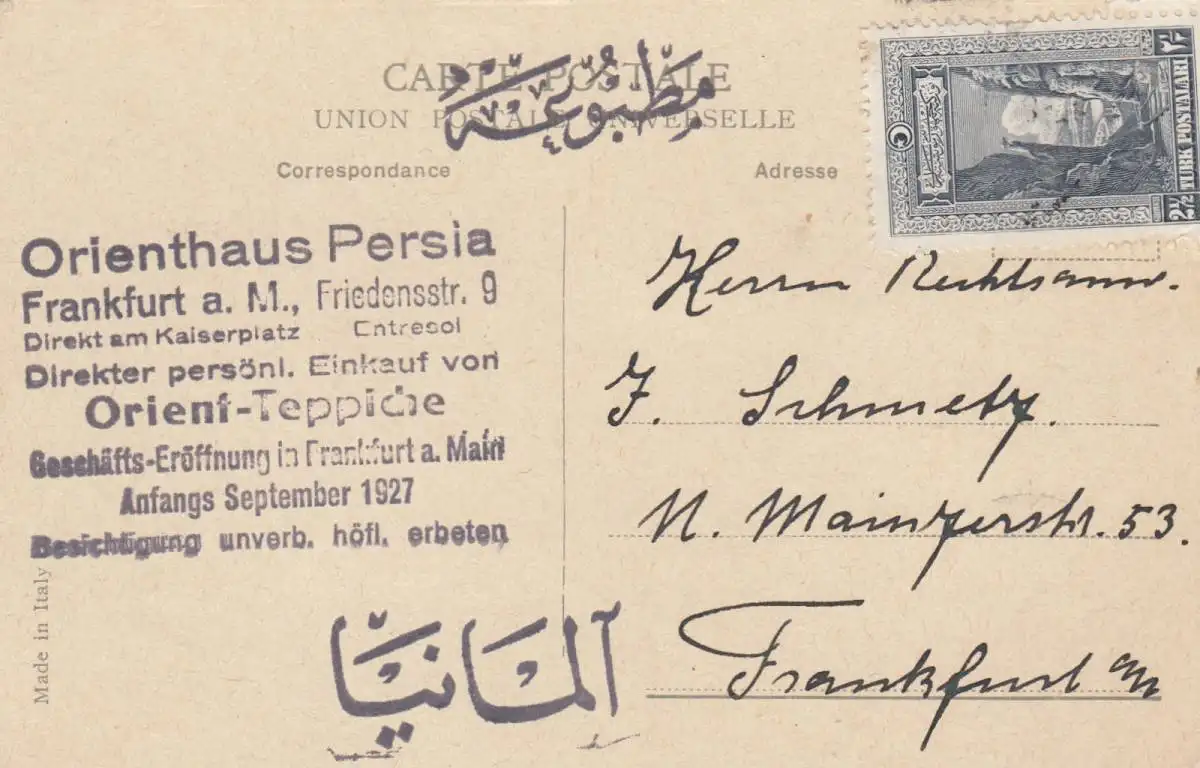 CARTE POSTALE
مطبوعة
UNION POSTALE UNIVERSELLE
Correspondance
Adresse
2½ TÜRK POSTALARI ٢½
Orienthaus Persia
Frankfurt a. M., Friedensstr. 9
Direkt am Kaiserplatz Entresol
Direkter persönl. Einkauf von
Orient-Teppiche
Geschäfts-Eröffnung in Frankfurt a. Main
Anfangs September 1927
Besichtigung unverb. höfl. erbeten
Made in Italy
آلمانيا
Herrn Rechtsanw.
J. Schmetz.
N. Mainzerstr. 53.
Frankfurt a/M